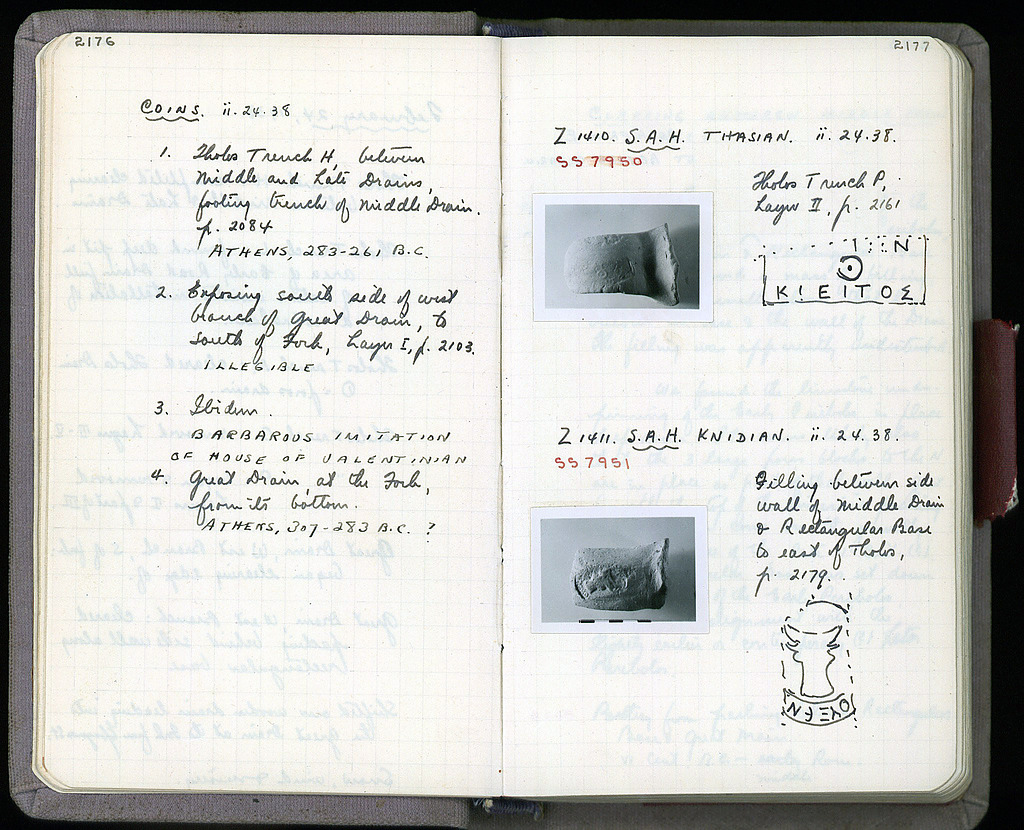 2176
COINS. ii.24.38
1. Tholos Trench H, between
Middle and Late Drains,
footing trench of Middle Drain.
p. 2084
ATHENS, 283-261 B.C.
2. Exposing south side of west
branch of Great Drain, to
south of Fork, Layer I, p. 2103.
ILLEGIBLE
3. Ibidem.
BARBAROUS IMITATION
OF HOUSE OF VALENTINIAN
4. Great Drain, at the Fork,
from its bottom.
ATHENS, 307-283 B.C. ?
2177
Z 1410. S.A.H. THASIAN. ii. 24.38.
SS 7950
Tholos Trench P,
Layer II, p. 2161
ΚΙΕΙΤΟΣ
Z 1411. S.A.H. KNIDIAN. ii. 24.38.
SS 7951
Filling between side
wall of Middle Drain
& Rectangular Base
to east of Tholos,
p. 2179.